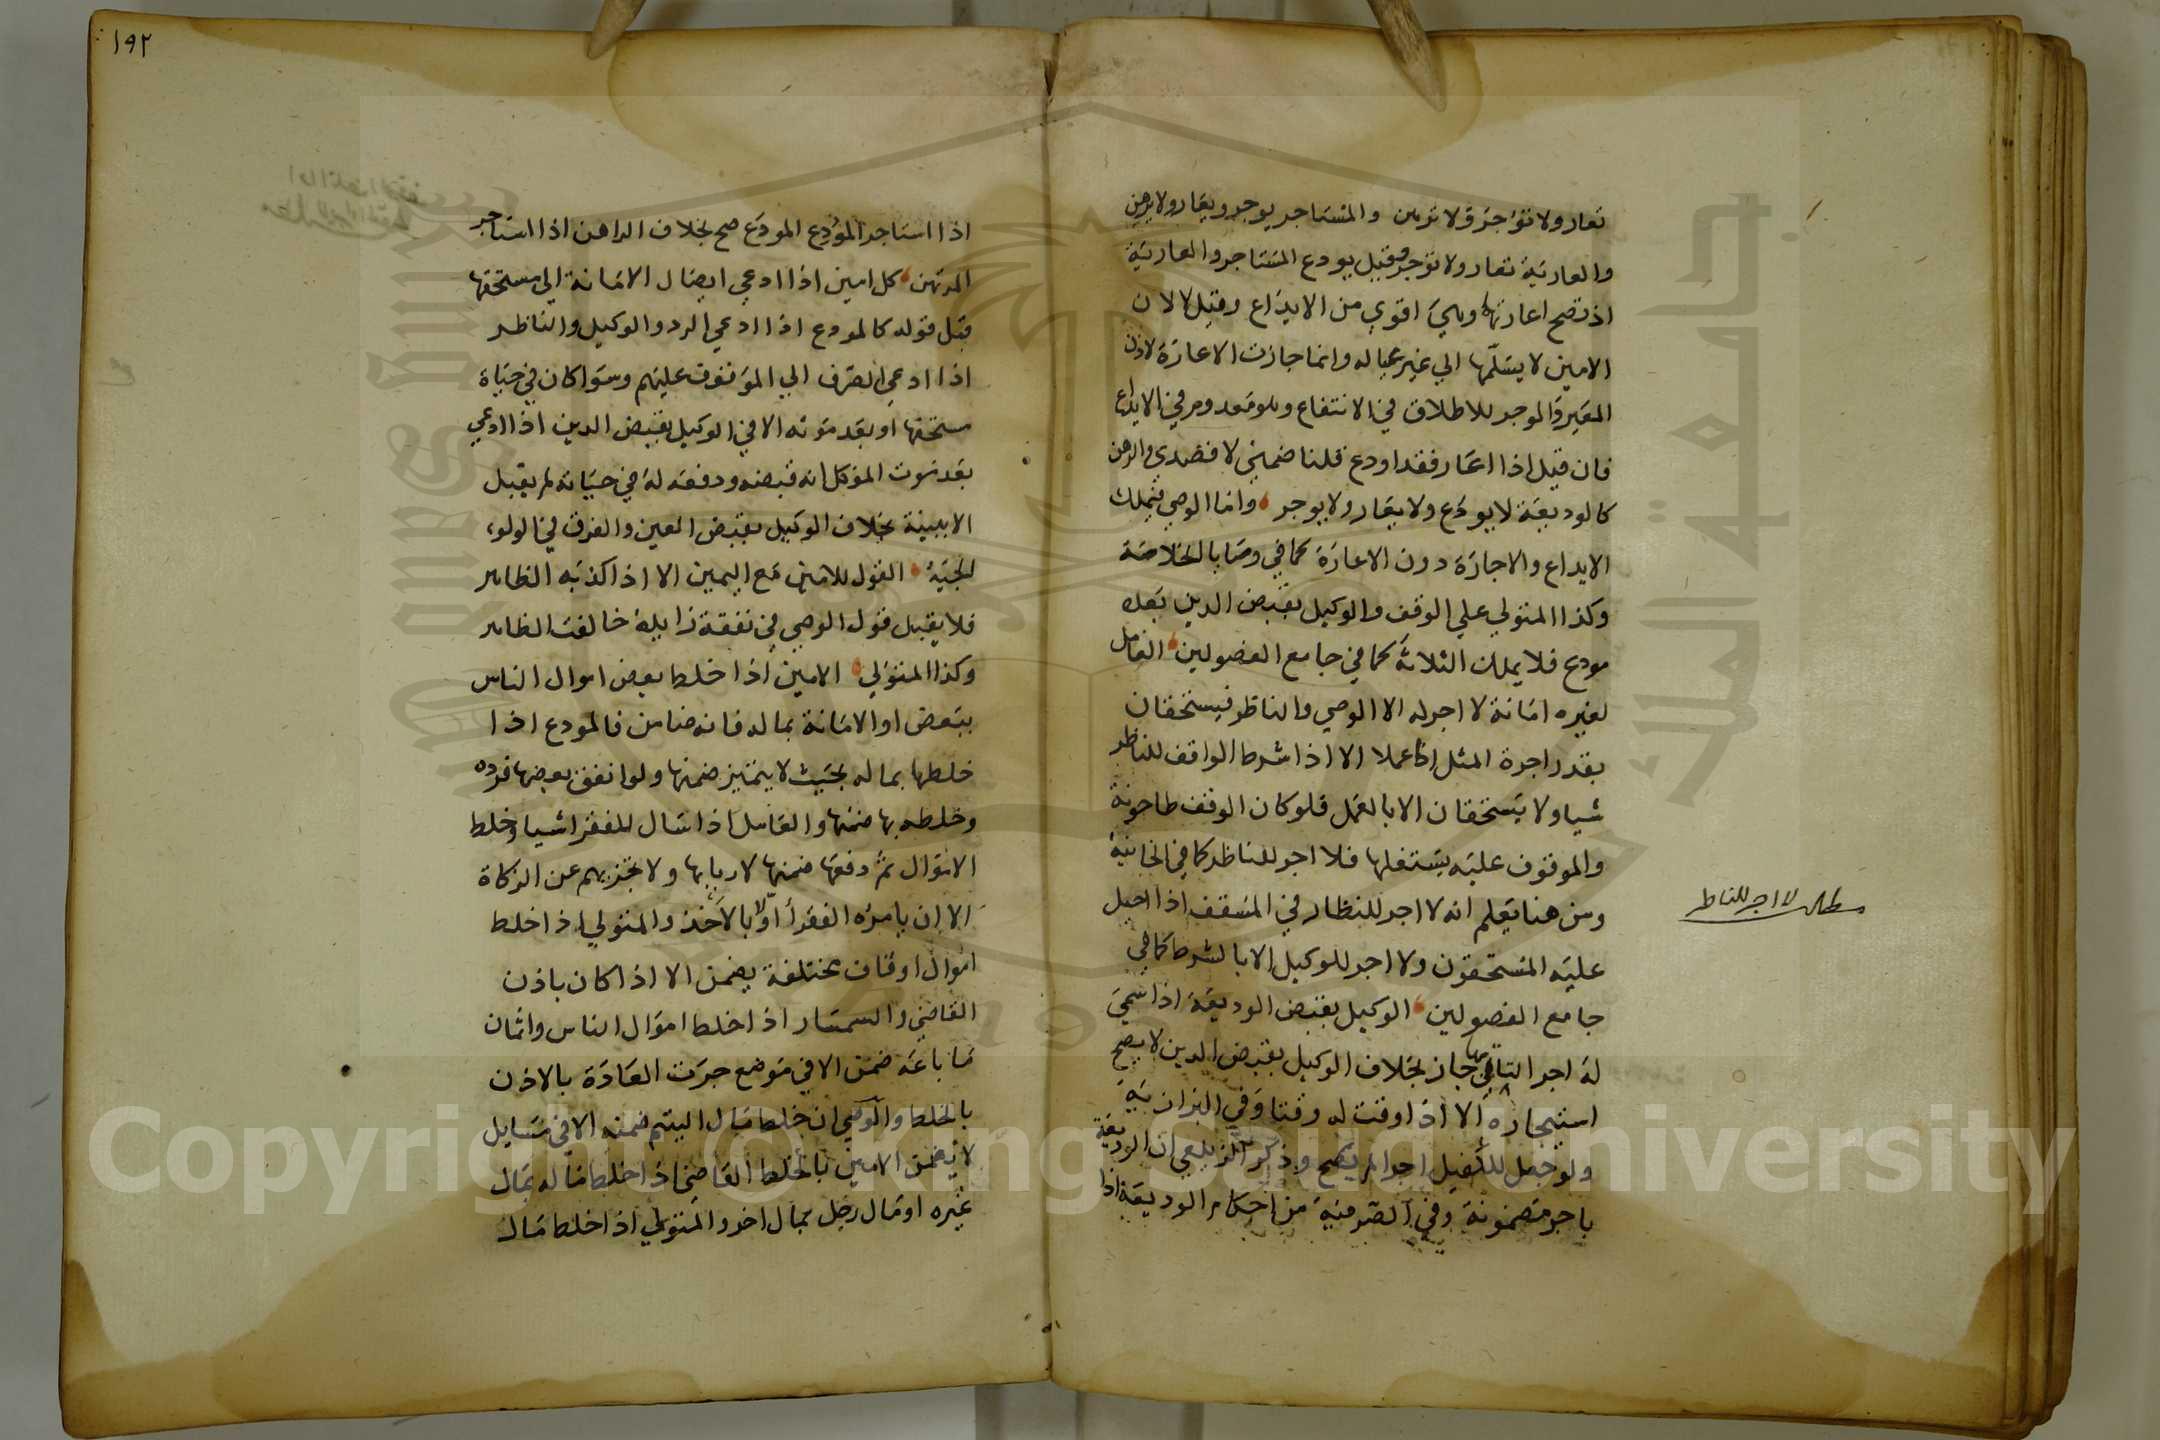 تعار ولا تؤجر ولا ترهن والمستاجر يوجر ويعار ولا يرهن
والعارية تعار ولا توجر وقيل يودع المستاجر والعارية
اذ تصح اعارتها وهي اقوي من الايداع وقيل لا لان
الامين لا يسلمها الي غير عياله وانما جازت الاعارة لاذن
المعير والموجر للاطلاق في الانتفاع وهو معدوم في الايداع
فان قيل اذا اعار فقد اودع قلنا ضمني لا قصدي والرهن
كالوديعة لا يودع ولا يعار ولا يوجر واما الوصي فيملك
الايداع والاجارة دون الاعارة كما في وصايا الخلاصة
وكذا المتولي علي الوقف والوكيل بقبض الدين بعده
مودع فلا يملك الثلاثة كما في جامع الفصولين العامل
لغيره امانة لا اجر له الا الوصي والناظر فيستحقان
بقدر اجرة المثل اذا عملا الا اذا شرط الواقف للناظر
شيا ولا يستحقان الا بالعمل فلو كان الوقف طاحونة
والموقوف عليه يستغلها فلا اجر للناظر كما في الخانية
ومن هنا يعلم انه لا اجر للنظار في المسقف اذا احيل
عليه المستحقون ولا اجر للوكيل الا بالشرط كما في
جامع الفصولين الوكيل بقبض الوديعة اذا سمي
له اجر التاتي بها جاز بخلاف الوكيل بقبض الدين لا يصح
استيجاره الا اذا وقت له وقتا وفي البزازية
ولو جعل للكفيل اجرا لم يصح وذكر الزيلعي ان الوديعة
باجر مضمونة وفي الصيرفية من احكام الوديعة اذا
مطلب لا اجر للناظر
١٩٢
اذا استاجر المودع المودع صح بخلاف الراهن اذا استاجر
المرتهن كل امين اذا ادعي ايصال الامانة الي مستحقها
قبل قوله كالمودع اذا ادعي الرد والوكيل والناظر
اذا ادعي الصرف الي الموقوف عليهم وسوا كان في حياة
مستحقها او بعد موته الا في الوكيل بقبض الدين اذا ادعي
بعد موت الموكل انه قبضه ودفعه له في حياته لم يقبل
الا ببينة بخلاف الوكيل بقبض العين والفرق في الولو
لجية القول للامين مع اليمين الا اذا كذبه الظاهر
فلا يقبل قول الوصي في نفقة زايدة خالفت الظاهر
وكذا المتولي الامين اذا خلط بعض اموال الناس
ببعض او الامانة بماله فانه ضامن فالمودع اذا
خلطها بماله بحيث لا يتميز ضمنها ولو انفق بعضها فرده
وخلطه بها ضمنها والعامل اذا سال للفقرا شيا وخلط
الاموال ثم دفعها ضمنها لاربابها ولا تجزيهم عن الزكاة
الا ان يامره الفقرا اولا بالاخذ والمتولي اذا خلط
اموال اوقاف مختلفة يضمن الا اذا كان باذن
القاضي والسمسار اذا خلط اموال الناس واثمان
ما باعه ضمن الا في موضع جرت العادة بالاذن
بالخلط والوصي ان خلط مال اليتيم ضمنه الا في مسايل
لا يضمن الامين بالخلط القاضي اذا خلط ماله بمال
غيره او مال رجل بمال اخر والمتولي اذا خلط مال
جامعة الملك سعود
Copyright © King Saud University